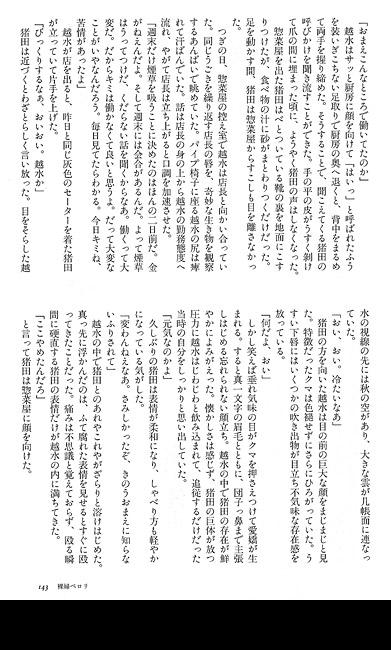 「おまえこんなところで働いてたのか」
　越水はサッと厨房に顔を向けて「はいっ」と呼ばれたふう
を装いぎこちない足取りで厨房の奥へ退くと、背中をまるめ
て両手を握り締めた。そうすることで、聞こえてくる猪田の
呼びかけを聞き流すことができた。手のひらの皮がうすく剥け
て爪の間に埋まった頃に、ようやく猪田の声はしなくなった。
　惣菜屋を出た猪田はべとついている靴の裏を地面にこす
りつけたが、食べ物の汁に砂がまとわりつくだけだった。
足を動かす間、猪田は惣菜屋からすこしも目を離さなかっ
た。
　つぎの日、惣菜屋の控え室で越水は店長と向かい合ってい
た。同じうごきを繰り返す店長の唇を、奇妙な生き物を観察
するあんばいで眺めていた。パイプ椅子に座る越水の尻は痺
れて汗ばんでいた。話は店長の身の上から越水の勤務態度へ
流れ、やがて店長は立ち上がると口調を加速させた。
「週末だけ煙草を吸うことに決めたのはほんの二日前だ。金
がねえんだよ。そして週末には会合があるんだ。よって煙草
はうってつけ。くだらない話を聞くからなあ。働くって大
変だ。だからキミは働かなくて良いと思うよ。だって大変な
ことがいやなんだろう。毎日見てたらわかる。今日キミね、
苦情があったよ」
　越水が店を出ると、昨日と同じ灰色のセーターを着た猪田
が立っていて片手を上げた。
「びっくりするなあ、おいおい。越水か」
　猪田は近づくとわざとらしく言い放った。目をそらした越
水の視線の先には秋の空があり、大きな雲が几帳面に連なっ
ていた。
「おい、おい。冷たいなあ」
　猪田の方を向いた越水は目の前の巨大な顔をまじまじと見
た。特徴だったクマは色褪せずにさらにひろがっていた。う
すい下唇にはいくつかの吹き出物が目立ち不気味な存在感を
放っている。
「何だよ、おい」
　しかし笑えば垂れ気味の目がクマを押さえつけて愛嬌が生
まれる。すると真一文字の眉毛とともに、団子っ鼻まで主張
しはじめる忘れられない顔立ち。越水の中で猪田の存在が鮮
やかによみがえった。懐かしさは感じず、猪田の巨体が放つ
圧力に越水はじわじわと飲み込まれて、追従するだけだった
当時の自分をしっかりと思い出していた。
「元気なのか」
　久しぶりの猪田は表情が柔和になり、しゃべり方も軽やか
になっている気がした。
「変わんねえなあ。さみしかったぞ、きのうおまえに知らな
いふりされて」
　越水の中で猪田とのあれやこれやがざらりと溶けはじめた。
真っ先に浮かんだのは、ふて腐れた表情を見せるとすぐに殴
ってきたことだった。痛みは不思議と覚えておらず、殴る瞬
間に硬直する猪田の表情だけが越水の内に満ちてきた。
「ここやめたんだろ」
　と言って猪田は惣菜屋に顔を向けた。
143　裸婦ペロリ